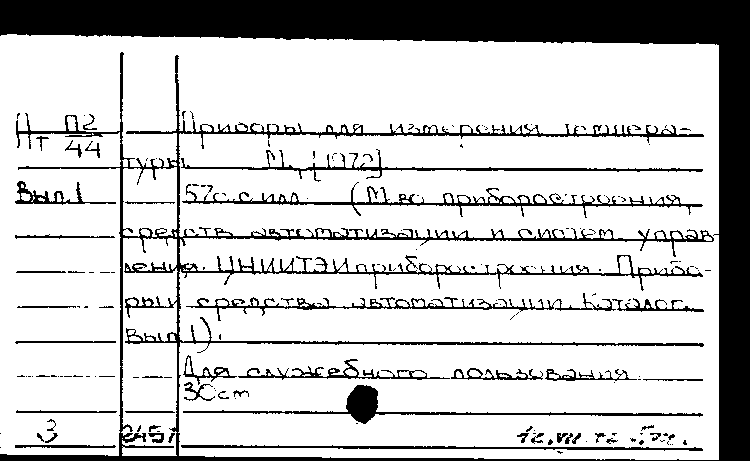 Пт П2/44 Приборы для измерения темпера-
туры. М., [1972]
Вып.1 57с. с илл. (М-во приборостроения,
средств автоматизации и систем управ-
ления. ЦНИИТЭИприборостроения. Прибо-
ры и средства автоматизации. Каталог.
Вып.1).
Для служебного пользования
30см
3 2451